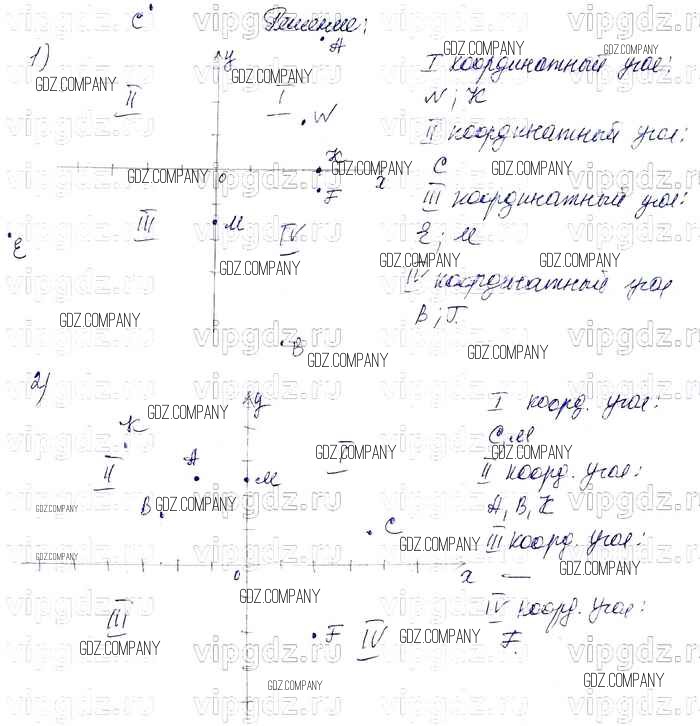 Решение:
1)
C
A
y
II
I
N
K
0
x
F
III
M
IV
E
B
I координатный угол:
N; K
II координатный угол:
C
III координатный угол:
E; M
IV координатный угол
B; F.
2)
y
K
II
A
I
M
B
C
0
x
III
F
IV
I коорд. угол:
C, M
II коорд. угол:
A, B, K
III коорд. угол:
—
IV коорд. угол:
F.
GDZ.COMPANY
vipgdz.ru